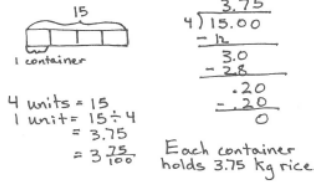 15
1 container
4 units = 15
1 unit = 15 ÷ 4
= 3.75
= 3 75/100
3.75
4)15.00
- 12
3.0
- 2.8
.20
- .20
0
Each container
holds 3.75 kg rice